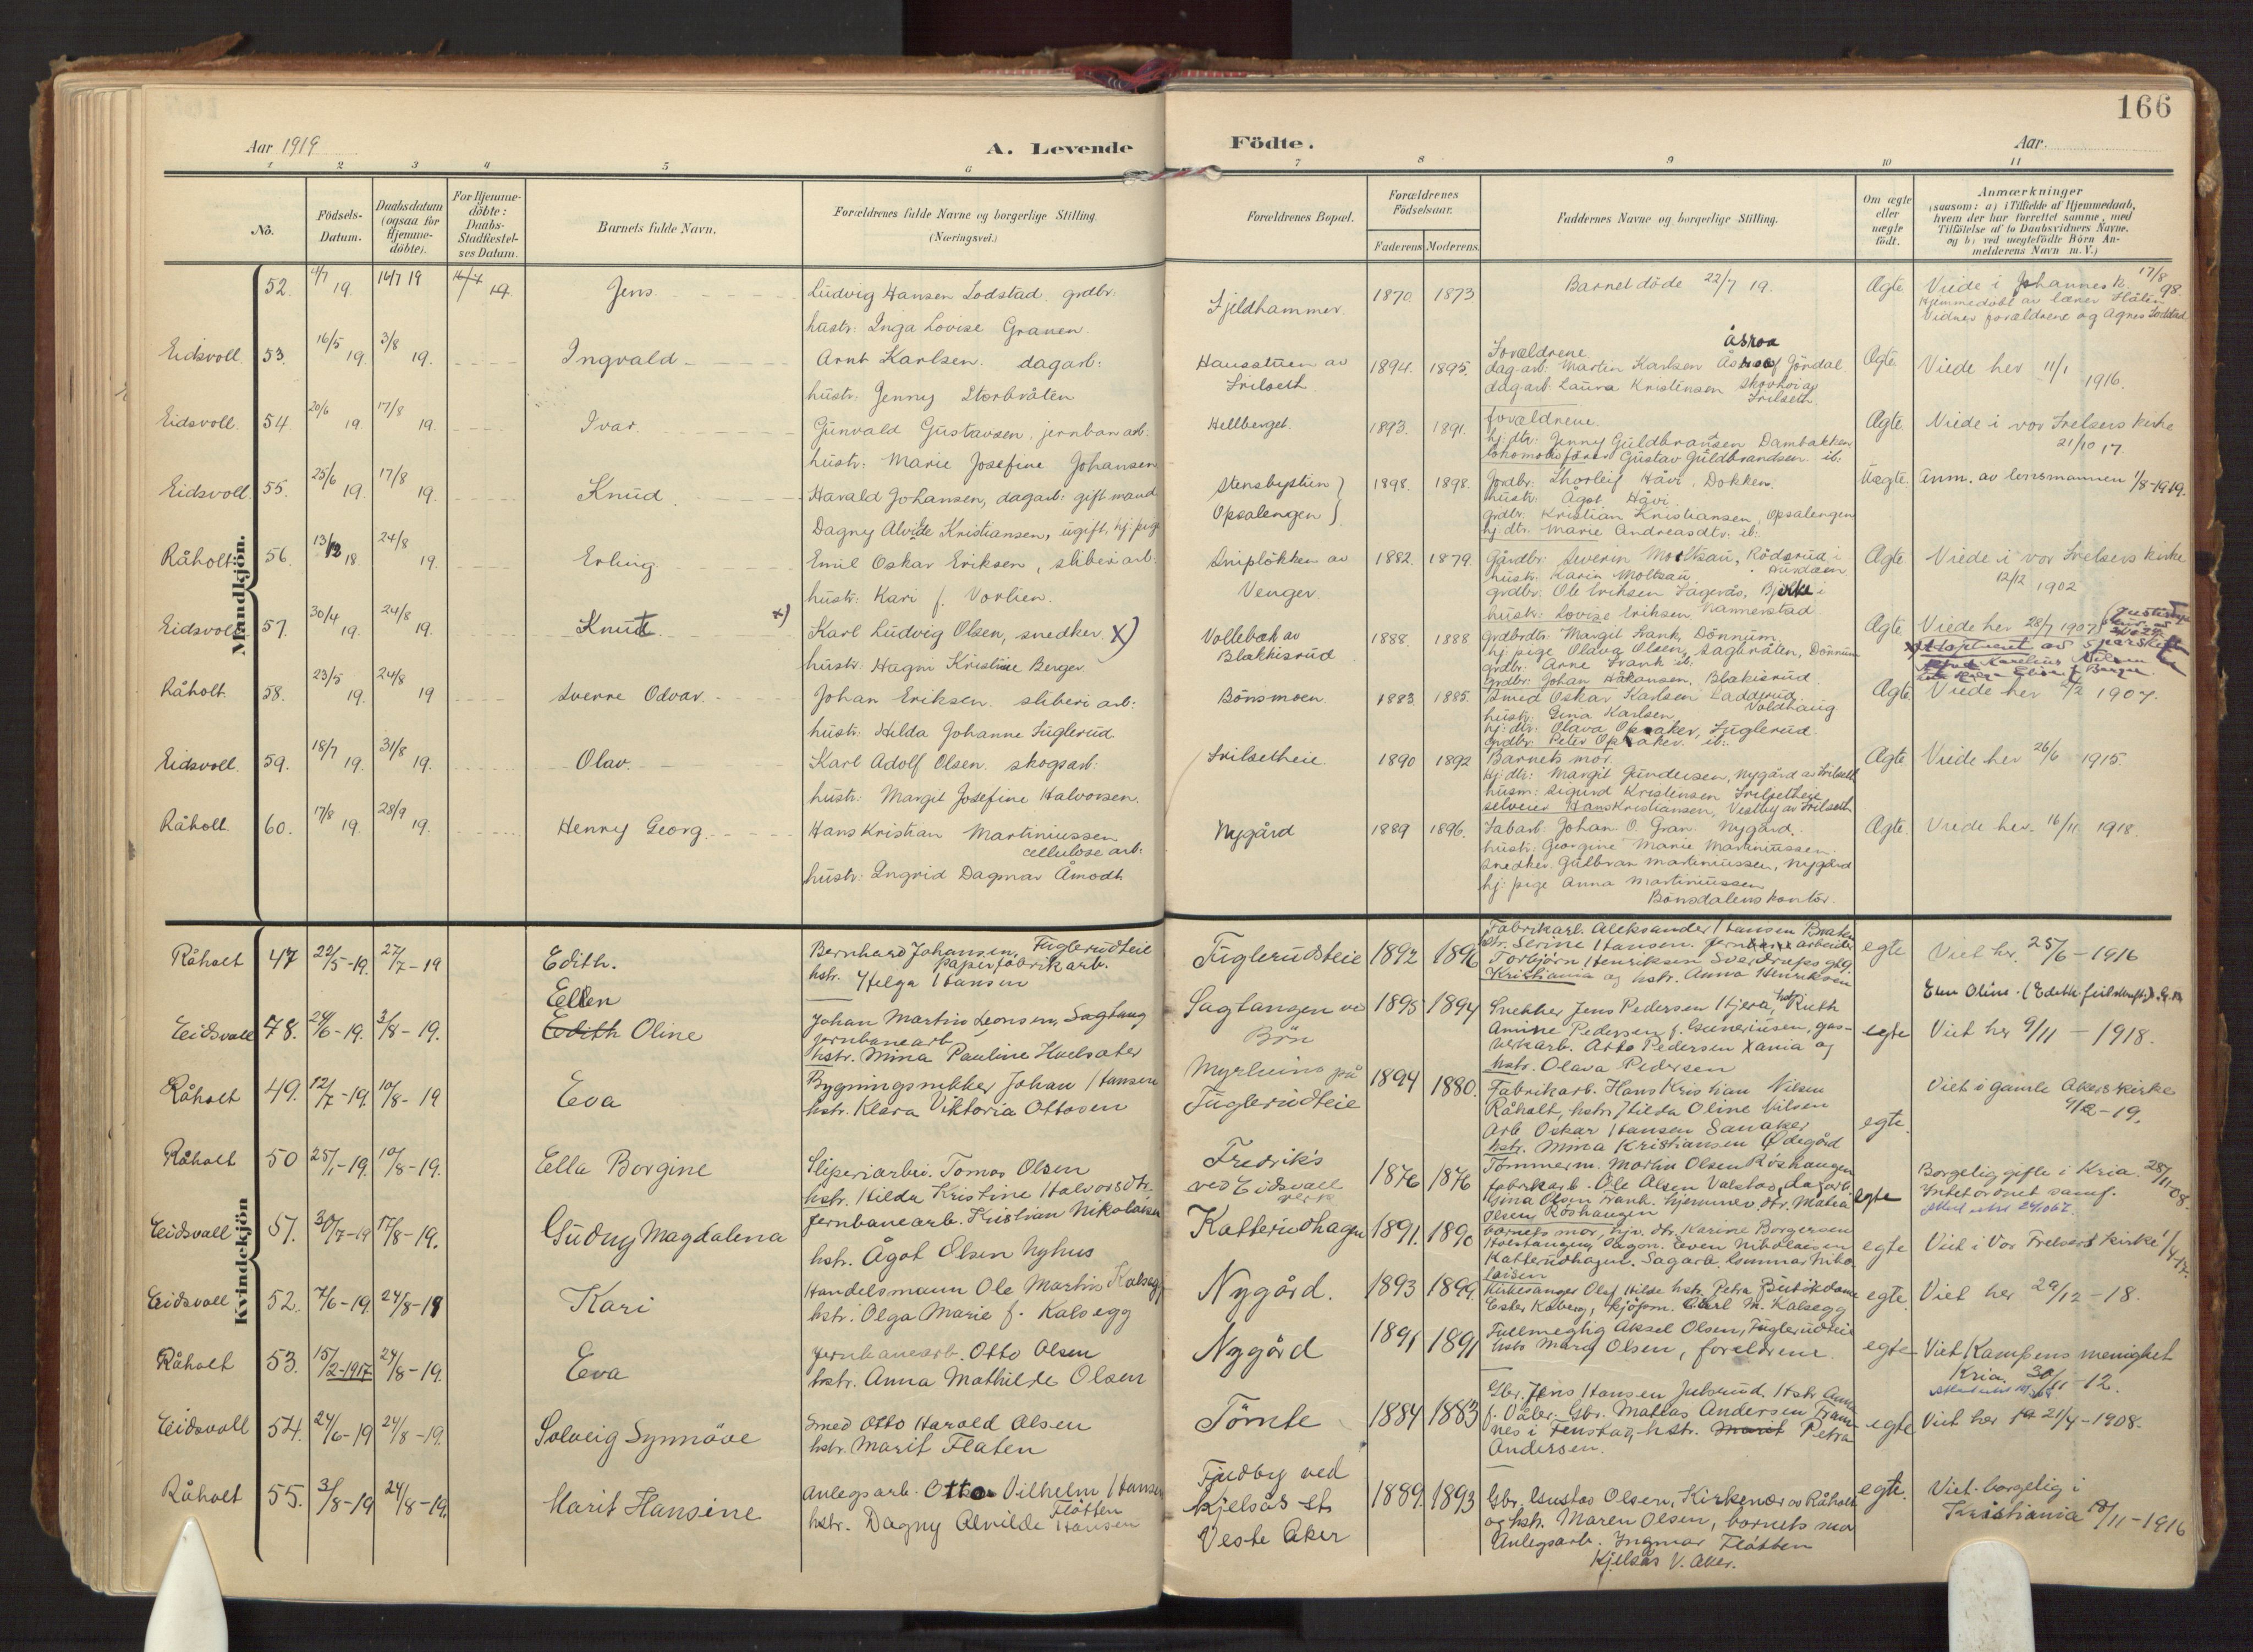 166
Aar 1919
A. Levende
Födte.
Aar.
1 2 3 4 5 6 7 8 9 10 11
No.
Födsels-Datum.
Daabsdatum (ogsaa for Hjemme-döbte).
For Hjemme-döbte: Daabs-Stadfestel-ses Datum.
Barnets fulde Navn.
Forældrenes fulde Navne og borgerlige Stilling
(Næringsvei.)
Forældrenes Bopæl.
Forældrenes Födselsaar.
Faderens Moderens
Faddernes Navne og borgerlige Stilling.
Om ægte eller uægte födt.
Anmærkninger
(saasom: a) i Tilfælde af Hjemmedaab,
hvem der har forrettet samme, med
Tilföielse af to Daabsvidners Navne.
og b) ved uægtefödte Börn An-
melderens Navn m. V.)
Mandkjön.
52. 4/7 19. 16/7 19 16/7 19 Jens
Ludvig Hansen Lodstad grdbr:
hustr: Inga Lovise Granen.
Fjeldhammer 1870 1873
Barnet döde 22/7 19.
Ægte Viede i Johannes k. 17/8 98.
Hjemmedöbt av lærer
Vidner forældrene og Agnes Lodstad
Eidsvoll 53. 16/5 19. 3/8 19. Ingvald
Arnt Karlsen. dagarb:
hustr: Jenny Storbråten
Hausstuen av
Frilseth 1894. 1895.
Forældrene åsroa
dagarb: Martin Karlsen
dagarb. Laura Kristensen
Frilseth
Ægte Viede her 11/1 1916.
Eidsvoll 54. 20/6 19. 17/8 19. Ivar
Gunvald Gustavsen. jernban arb:
hustr: Marie Josefine Johansen
Hellberget. 1893. 1891.
forældrene.
hj: dtr: Jenny Guldbransen Dambakken
Gustav Guldbrandsen. ib:
Ægte Viede i vor Frelsers kirke
21/10 17.
Eidsvoll. 55. 25/6 19. 17/8 19. Knud
Harald Johansen, dagarb: gift mand
Dagny Alvilde Kristiansen, ugift, hj: pige
Stensbystuen
Opsalengen 1898. 1898.
Gårdbr: Thorleif Håvi, Dokken.
hustr: Ågot Håvi
grdbr: Kristian Kristiansen, Opsalengen
hj: dtr: Marie Andreasdtr: ib:
Uægte. Anm. av lensmannen 1/8-1919.
Råholt 56. 13/12 18. 24/8 19. Erling
Emil Oskar Eriksen, sliberiarb:
hustr: Kari f. Vorlien.
Sniplökken av
Venger. 1882. 1879.
Gårdbr: Severin Moltsau, Rödsrud i
hustr: Karin Moltsau
grdbr: Ole Eriksen
hustr: Lovise Eriksen
Ægte. Viede i vor Frelsers kirke
12/12 1902
Eidsvoll 57. 30/4 19. 24/8 19. Knut x)
Karl Ludvig Olsen, snedker x)
hustr: Hagni Kristine Berger
Vollebæk av
Blakkisrud 1888. 1888
Grdbrdtr: Margit Frank, Dönnum,
hj: pige Olava Olsen, Sagbråten, Dönnum
grdbr: Arne Frank ib:
grdbr: Johan Håkansen, Blakisrud.
Ægte Viede her 28/7 1907
Råholt. 58. 23/5 19. 24/8 19 Sverre Odvar.
Johan Eriksen. sliberi arb:
hustr: Hilda Johanne Fuglerud
Bönsmoen 1883. 1885.
Smed Oskar Karlsen Ladderud
hustr: Gina Karlsen, Voldhaug
hj: dtr: Olava Opsaker, Fuglerud
grdbr: Peter Opsaker ib:
Ægte Viede her 1907.
Eidsvoll. 59. 18/7 19. 31/8 19. Olav.
Karl Adolf Olsen. skogsarb:
hustr: Margit Josefine Halvorsen.
Frilsetheie. 1890 1892
Barnets mor.
hj: dtr: Margit Gundersen, Nygård av Frilseth
husm: Sigurd Kristensen Frilsetheie
selveier Hans Kristiansen, Vestby av Frilseth
Ægte. Viede her 26/6 1915.
Råholt. 60. 17/8 19. 28/9 19. Henry Georg.
Hans Kristian Martiniussen
cellulose arb:
hustr: Ingrid Dagmar Åmodt
Nygård 1889 1896.
Fabarb: Johan O. Gran. Nygård.
hustr: Georgine Marie Martiniussen.
Snedker. Gulbran Martiniussen, Nygård
hj: pige Anna Martiniussen
Bönsdalens kontor.
Ægte. Viede her. 16/11 1918.
Kvindekjön
Råholt 47 22/5-19. 27/7-19 Edith.
Bernhard Johansen, Fuglerudteie
papirfabrikarb.
hstr. Helga Hansen
Fuglerudsteie 1892 1896
Fabrikarb. Aleksander Hansen Braten
Serine Hansen. arbeider
Torbjörn Henriksen
Kristiania og hstr. Anna Henriksen
egte Viet her. 25/6-1916
Eidsvoll 48. 24/6-19. 3/8-19. Ellen
Edith Oline
Johan Martin Leonsen, Sagtang
jernbanearb
hstr. Mina Pauline
Sagtangen ved
Bön 1895 1894
Snekker Jens Pedersen Hjera, hst. Ruth
Amine Pedersen f. Guneriusen, gas-
verkarb. Otto Pedersen Xania og
hstr. Olava Pedersen
egte Viet her 9/11-1918.
Råholt 49. 12/7-19. 10/8-19 Eva
Bygningsnikker Johan Hansen
hstr. Klara Viktoria Ottosen
Myrheim på
Fuglerudteie 1894 1880.
Fabrikarb. Hans Kristian Nilsen
Råholt, hstr. Hilda Oline Nilsen
Arb Oskar Hansen Sanaker
hstr. Mina Kristiansen Ødegård
egte. Viet i gamle Akers kirke
Råholt 50 25/1-19. 10/8-19. Ella Borgine
Sliperiarbei. Tomas Olsen
hstr. Hilda Kristine Halvorsdtr.
Fredrik's
ved Eidsvall
verk 1876 1876
Tömmerm. Martin Olsen Röshaugen
fabrikarb. Ole Olsen Valstad, dagarb.
Gina Olsen
Olsen Röshaugen
egte Borgelig gifte i Kria. 28/11-08.
Eidsvall 51. 30/7-19 17/8-19. Gudny Magdalena
Jernbanearb. Kristian Nikolaisen
hstr. Ågot Olsen Nyhus
Katterudhagen 1891. 1890
barnets mor, hjv. dtr. Karine Borgersen
Even Nikolaisen
Katterudhagen. Sagarb. Gunnar Niko-
laisen
egte Viet i Vor Frelsers kirke
Eidsvall 52. 7/6-19. 24/8-19 Kari
Handelsmann Ole Martin Kalsegg
hstr. Olga Marie f. Kalsegg
Nygård. 1893 1899.
Kirkesanger Olaf Hilde hstr. Petra Butikdame
Ester Koberg, kjöpm. Carl M. Kalsegg
egte. Viet her 29/12-18.
Råholt 53. 15/2-1917 24/8-19. Eva
Jernbanearb. Otto Olsen
hstr. Anna Mathilde Olsen
Nygård 1891 1891
Fullmegtig Aksel Olsen, Fuglerudteie
hstr Mary Olsen, foreldrene.
egte Viet Kampens menighet
Kria. 30/11-12.
Eidsvoll 54. 24/6-19 24/8-19. Solveig Synnöve
Smed Otto Harald Olsen
hstr. Marit Flaten
Tömte 1884 1883
Gbr. Jens Hansen Julsrud. Hstr. Anna
f. Våler. Gbr. Mattias Andersen
nes i Finstad, hstr. Marit Petra
Andersen.
egte Viet her 21/4-1908.
Råholt 55. 3/8-19 24/8-19. Marit Hansine
Anlegsarb. Otto Vilhelm Hansen
Flåtten
hstr. Dagny Alvilde Hansen
Fjudby ved
Kjelsås st.
Vestre Aker 1889. 1893
Gbr. Gustav Olsen, Kirkenær av Råholt
og hstr. Maren Olsen, barnets mor
Anlegsarb. Ingmar Flåtten
Kjelsås V. Aker.
egte. Viet borgelig i
Kristiania 18/11-1916